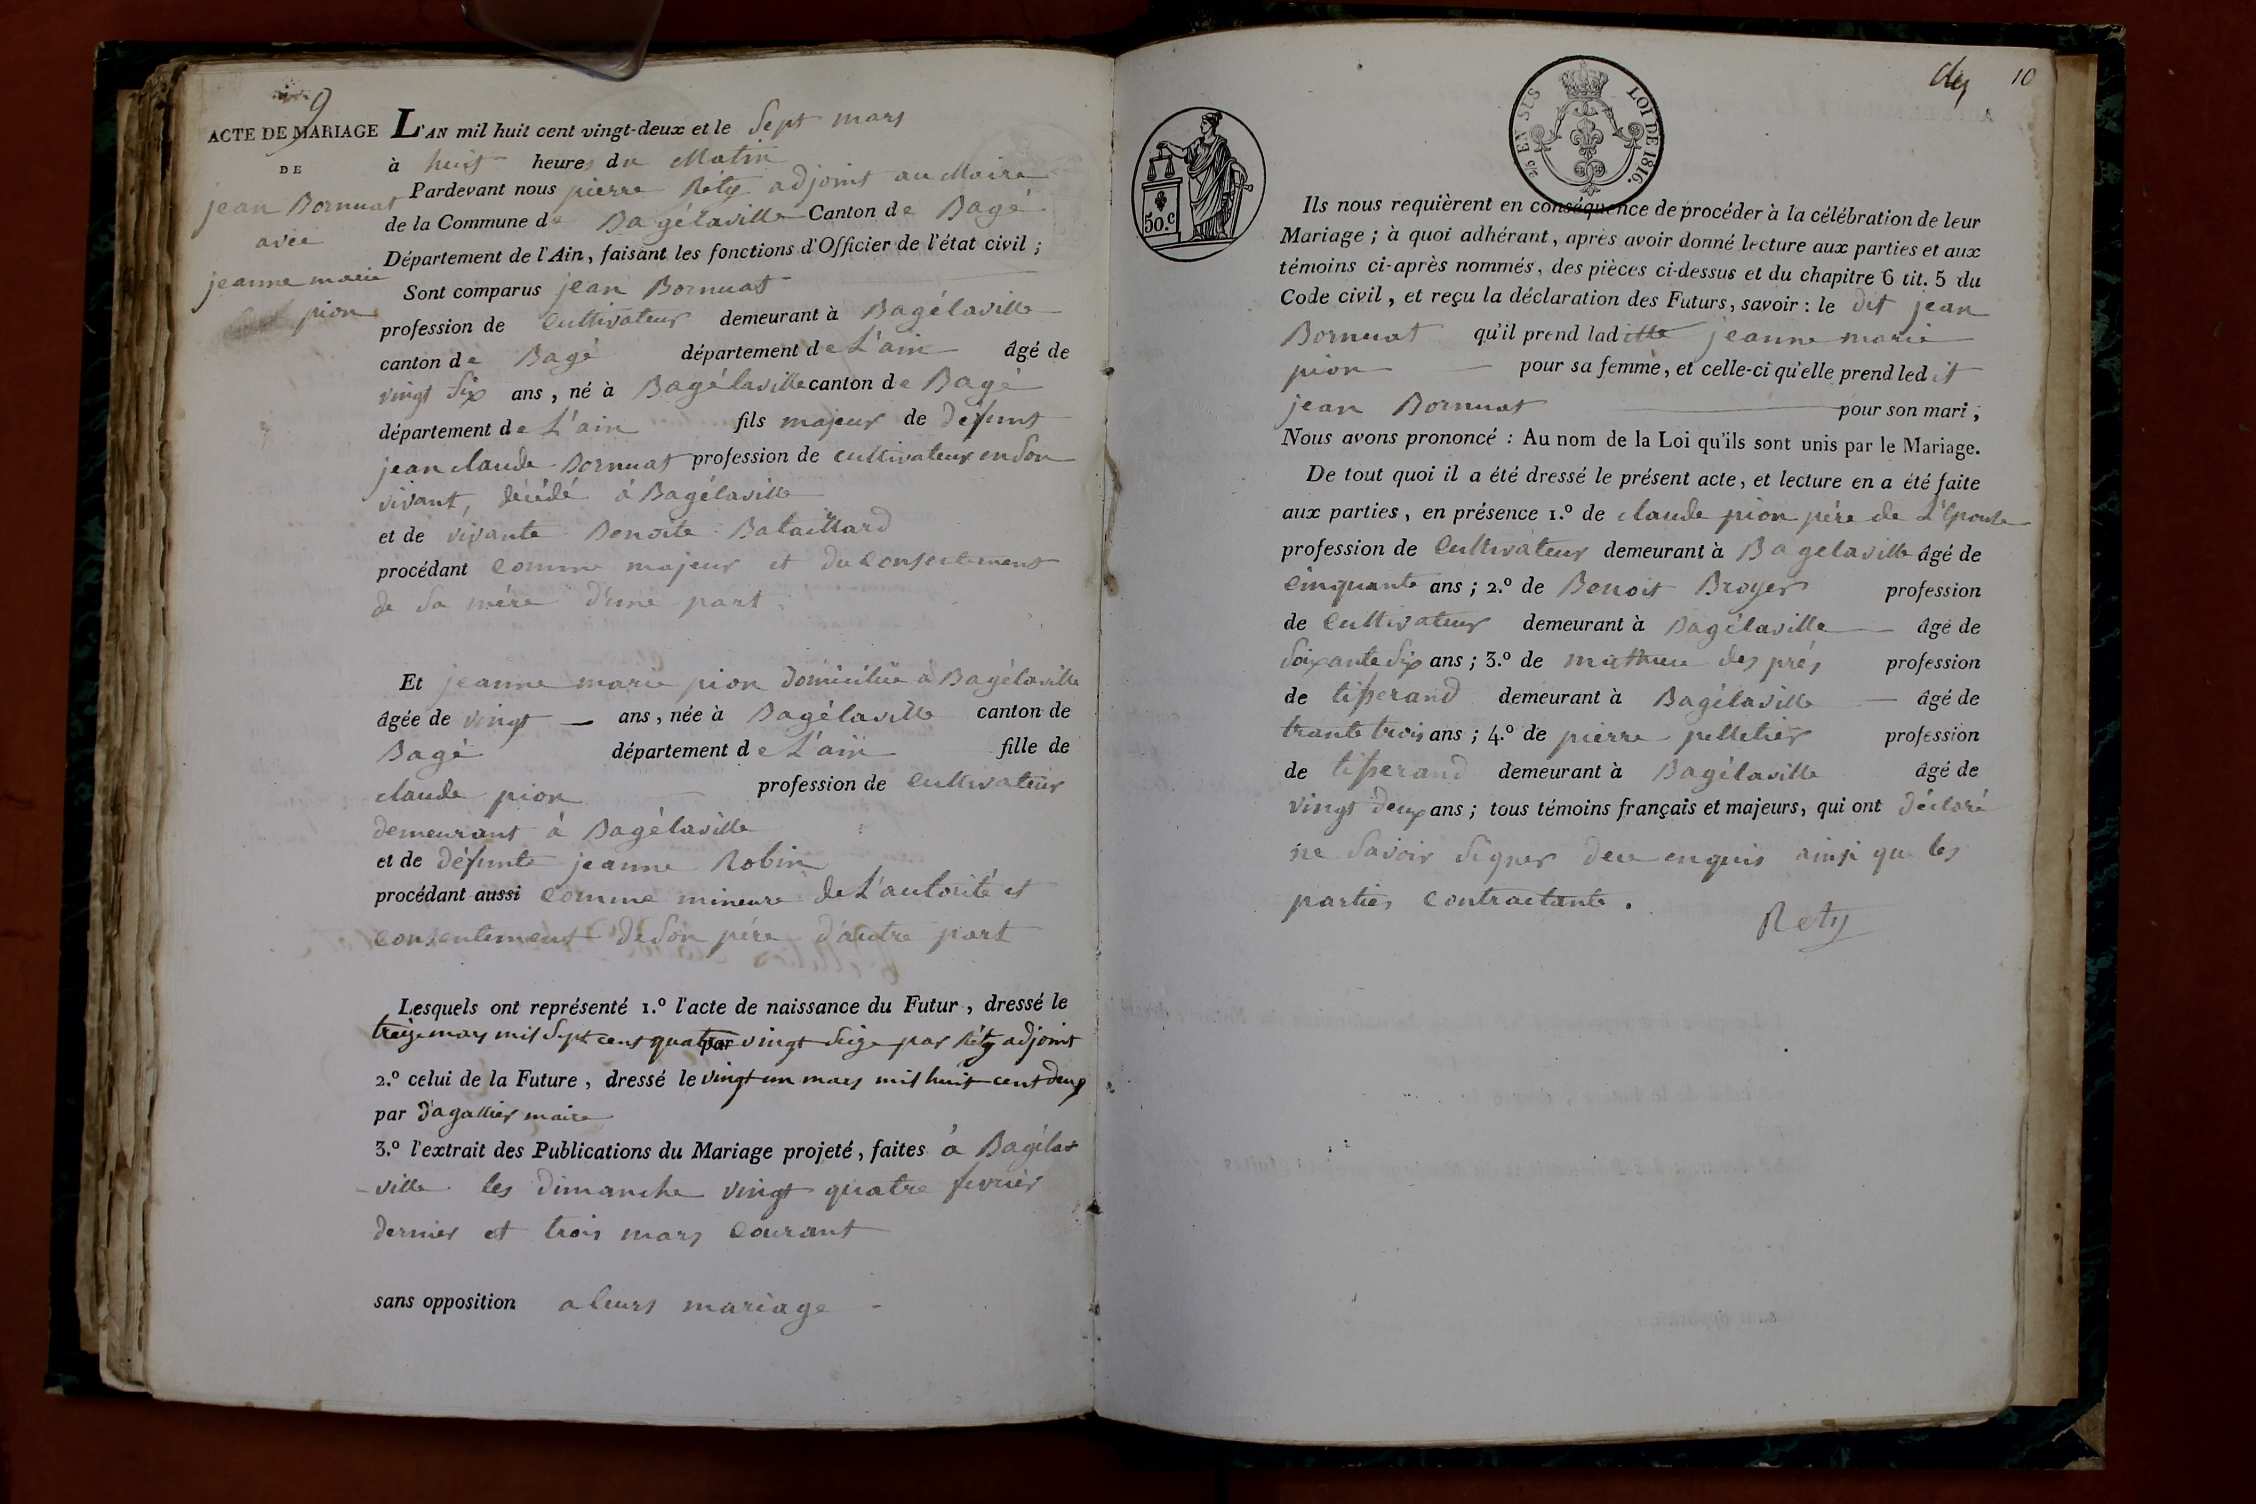 9
ACTE DE MARIAGE
DE
jean Bornuat
avec
jeanne marie
pion
L'AN mil huit cent vingt-deux et le Sept mars
à huit heures du Matin
Pardevant nous pierre Réty adjoint au Maire
de la Commune de Bagélaville Canton de Bagé
Département de l'Ain, faisant les fonctions d'Officier de l'état civil ;
Sont comparus jean Bornuat
profession de Cultivateur demeurant à Bagélaville
canton de Bagé département de L'ain âgé de
vingt Six ans, né à Bagélaville canton de Bagé
département de L'ain fils majeur de défunt
jean claude Bornuat profession de cultivateur en Son
vivant, décédé à Bagélaville
et de vivante Benoite Bataillard
procédant comme majeur et du consentement
de Sa mère d'une part.
Et jeanne marie pion domiciliée à Bagélaville
âgée de vingt — ans, née à Bagélaville canton de
Bagé département de L'ain fille de
claude pion profession de Cultivateur
demeurant à Bagélaville
et de défunte jeanne Robin
procédant aussi comme mineure de L'autorité et
consentement de Son père d'autre part
Lesquels ont représenté 1.º l'acte de naissance du Futur, dressé le
treize mars mil Sept cent quatre par vingt Seize par Réty adjoint
2.º celui de la Future, dressé le vingt un mars mil huit cent deux
par d'agallier maire
3.º l'extrait des Publications du Mariage projeté, faites à Bagéla
-ville les dimanche vingt quatre fevrier
dernier et trois mars Courant
sans opposition a leurs mariage -
10
50.C
EN SUS
LOI DE 1816.
Ils nous requièrent en conséquence de procéder à la célébration de leur
Mariage ; à quoi adhérant, après avoir donné lecture aux parties et aux
témoins ci-après nommés, des pièces ci-dessus et du chapitre 6 tit. 5 du
Code civil, et reçu la déclaration des Futurs, savoir : le dit jean
Bornuat qu'il prend laditte jeanne marie
pion — pour sa femme, et celle-ci qu'elle prend ledit
jean Bornuat pour son mari ;
Nous avons prononcé : Au nom de la Loi qu'ils sont unis par le Mariage.
De tout quoi il a été dressé le présent acte, et lecture en a été faite
aux parties, en présence 1.º de claude pion père de L'Epouse
profession de Cultivateur demeurant à Bagelaville âgé de
Cinquante ans ; 2.º de Benoit Broyer profession
de Cultivateur demeurant à Bagélaville — âgé de
Soixante Six ans ; 3.º de mathieu des prés profession
de tisserand demeurant à Bagélaville — âgé de
trante trois ans ; 4.º de pierre pelletier profession
de tisserand demeurant à Bagélaville âgé de
vingt deux ans ; tous témoins français et majeurs, qui ont déclaré
ne Savoir Signer deue enquis ainsi que les
parties Contractante.
Rety